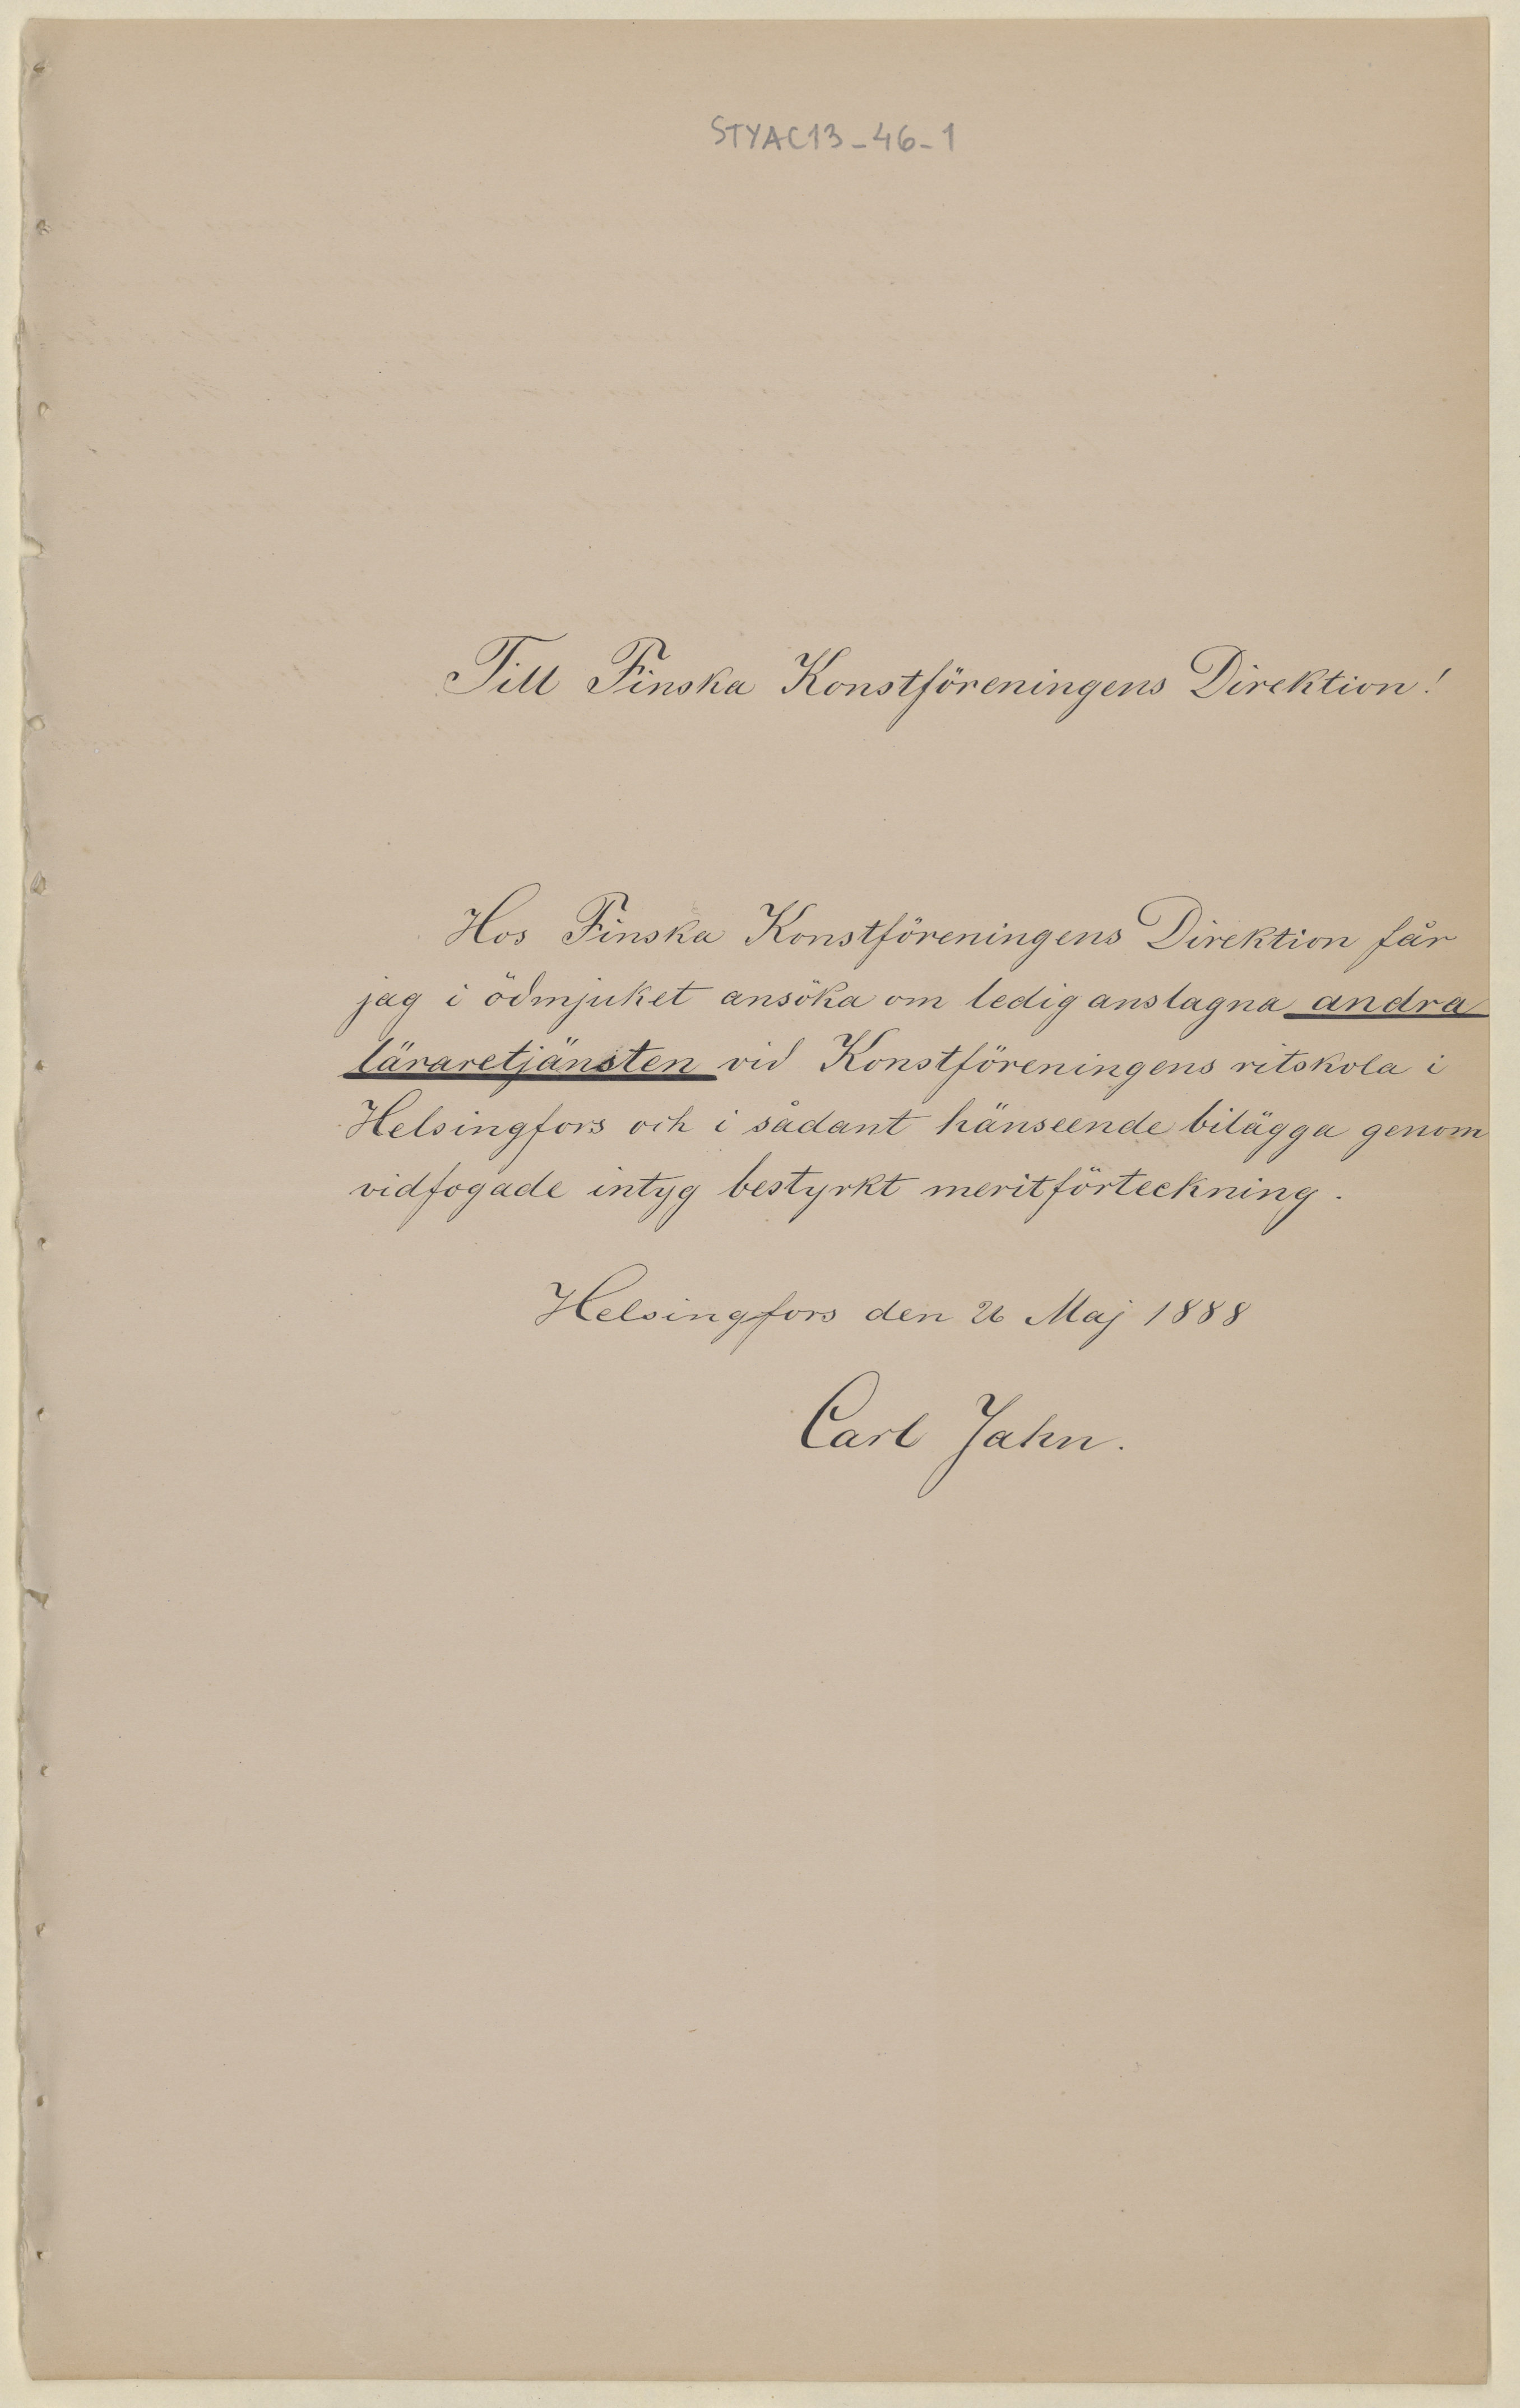 STYAC13-46-1
Till Finska Konstföreningens Direktion!
Hos Finska Konstföreningens Direktion får
jag i ödmjuket ansöka om ledig anslagna andra
läraretjänsten vid Konstföreningens ritskola i
Helsingfors och i sådant hänseende bilägga genom
vidfogade intyg bestyrkt meritförteckning.
Helsingfors den 26 Maj 1888
Carl Jahn.